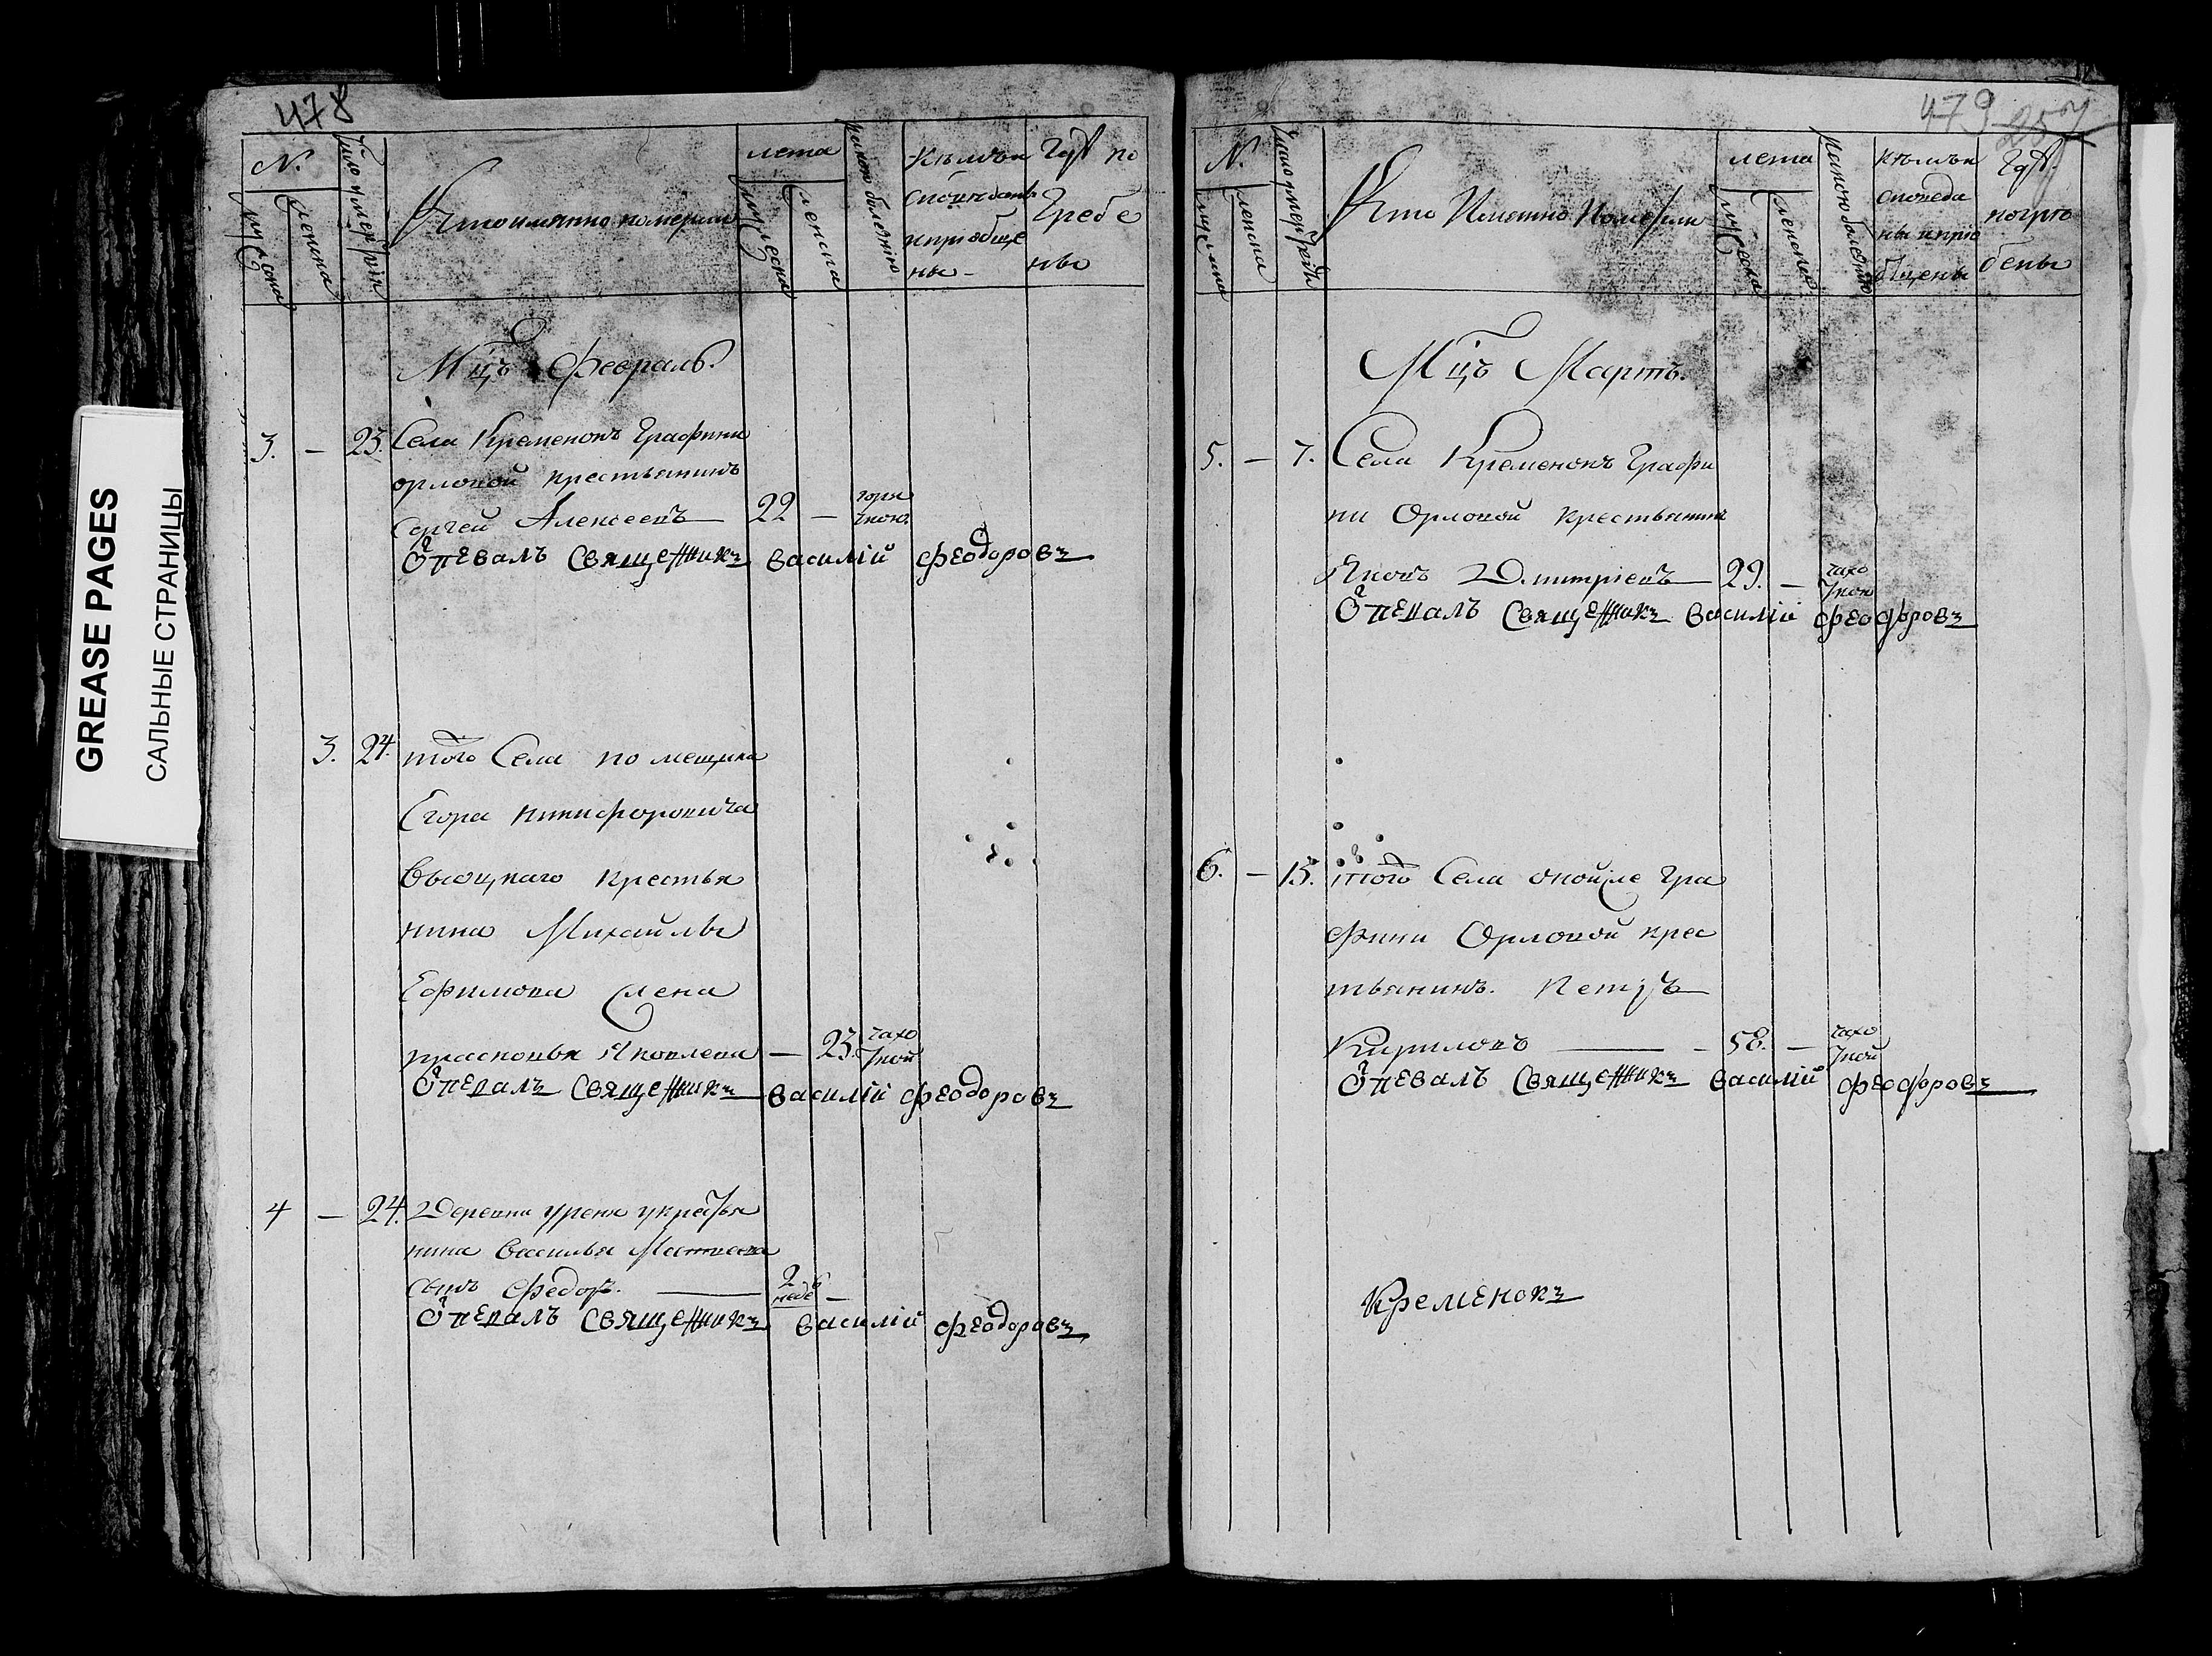 478
№.
мужска
женска
число умерших
Кто имянно померли
лета
мужеска
женска
какою болезнию
Кѣмъ и
сповѣданы
и приобще
ны
Гдѣ по
гребе
ны
Мцъ Февраль.
3. — 23. Села Кременокъ Графини
орловой крестьянинъ
Сергей Алексеевъ — 22 — горя
чкою
Отпевалъ Священникъ василий феодоровъ
3. 24. того Села помещика
Егора никифоровича
высоцкаго крестья
нина Михайлы
Ефимова жена
прасковья Яковлева — 23. чахо
ткой
Отпевалъ Священникъ василий феодоровъ
4 — 24. Деревни уреня у крестья
нина василья Матвеева
сынъ Федоръ. — 2
неде —
Отпевалъ Священникъ василий феодоровъ
GREASE PAGES
САЛЬНЫЕ СТРАНИЦЫ
479
257
№.
мужска
женска
Кто Имянно Померли
лета
мужеска
женска
какою болезнию
кѣмъ и
споведа
ны и прио
бщены
Гдѣ
погре
бены
Мцъ Мартъ.
5. — 7. Села Кременокъ Графи
ни Орловой крестьянинъ
Яковъ Дмитриевъ — 29. — чахо
ткою
Отпевалъ Священникъ василий феодоровъ
6. — 15. того Села оной же Гра
фини Орловой крес
тьянинъ. Петръ
Кириловъ — 58. — чахо
ткой
Отпевалъ Священникъ василий феодоровъ
Кременокъ